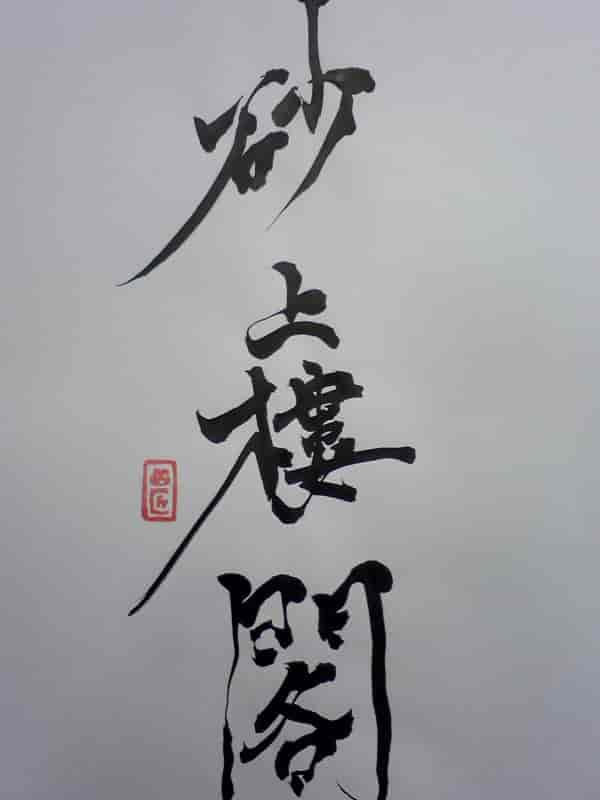 砂上樓閣